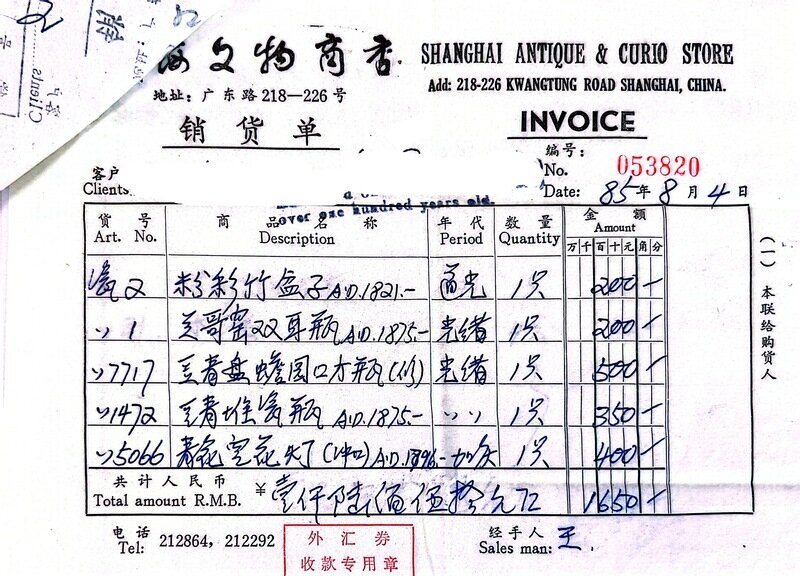 Clients
客户
海文物商店 SHANGHAI ANTIQUE & CURIO STORE
地址：广东路218—226号 Add: 218-226 KWANGTUNG ROAD SHANGHAI, CHINA.
销货单 INVOICE
客户 编号：
Clients No. 053820
Date: 85年8月4日
over one hundred years old.
货号 商品名称 年代 数量 金额
Art. No. Description Period Quantity Amount
万千百十元角分
瓷2 粉彩竹盒子A.D.1821.- 1只 200-
〃1 哥窑双耳瓶A.D.1875.- 光绪 1只 200-
〃7717 豆青盘蟾园口方瓶(修) 光绪 1只 500-
〃1472 豆青堆瓷瓶A.D.1875.- 〃〃 1只 350-
〃5066 青花 A.D.1796- 加庆 1只 400-
共计人民币
Total amount R.M.B. ¥壹仟陆佰伍拾元正 1650-
电话 外汇券 经手人
Tel: 212864, 212292 收款专用章 Sales man: 王
(一)本联给购货人